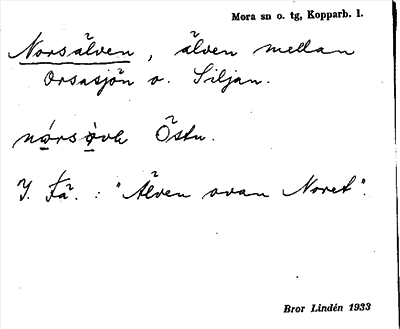 Mora sn o. tg, Kopparb. l.
Norsälven, älven mellan
Orsasjön o. Siljan.
Östn.
: "Älven ovan Noret".
Bror Lindén 1933